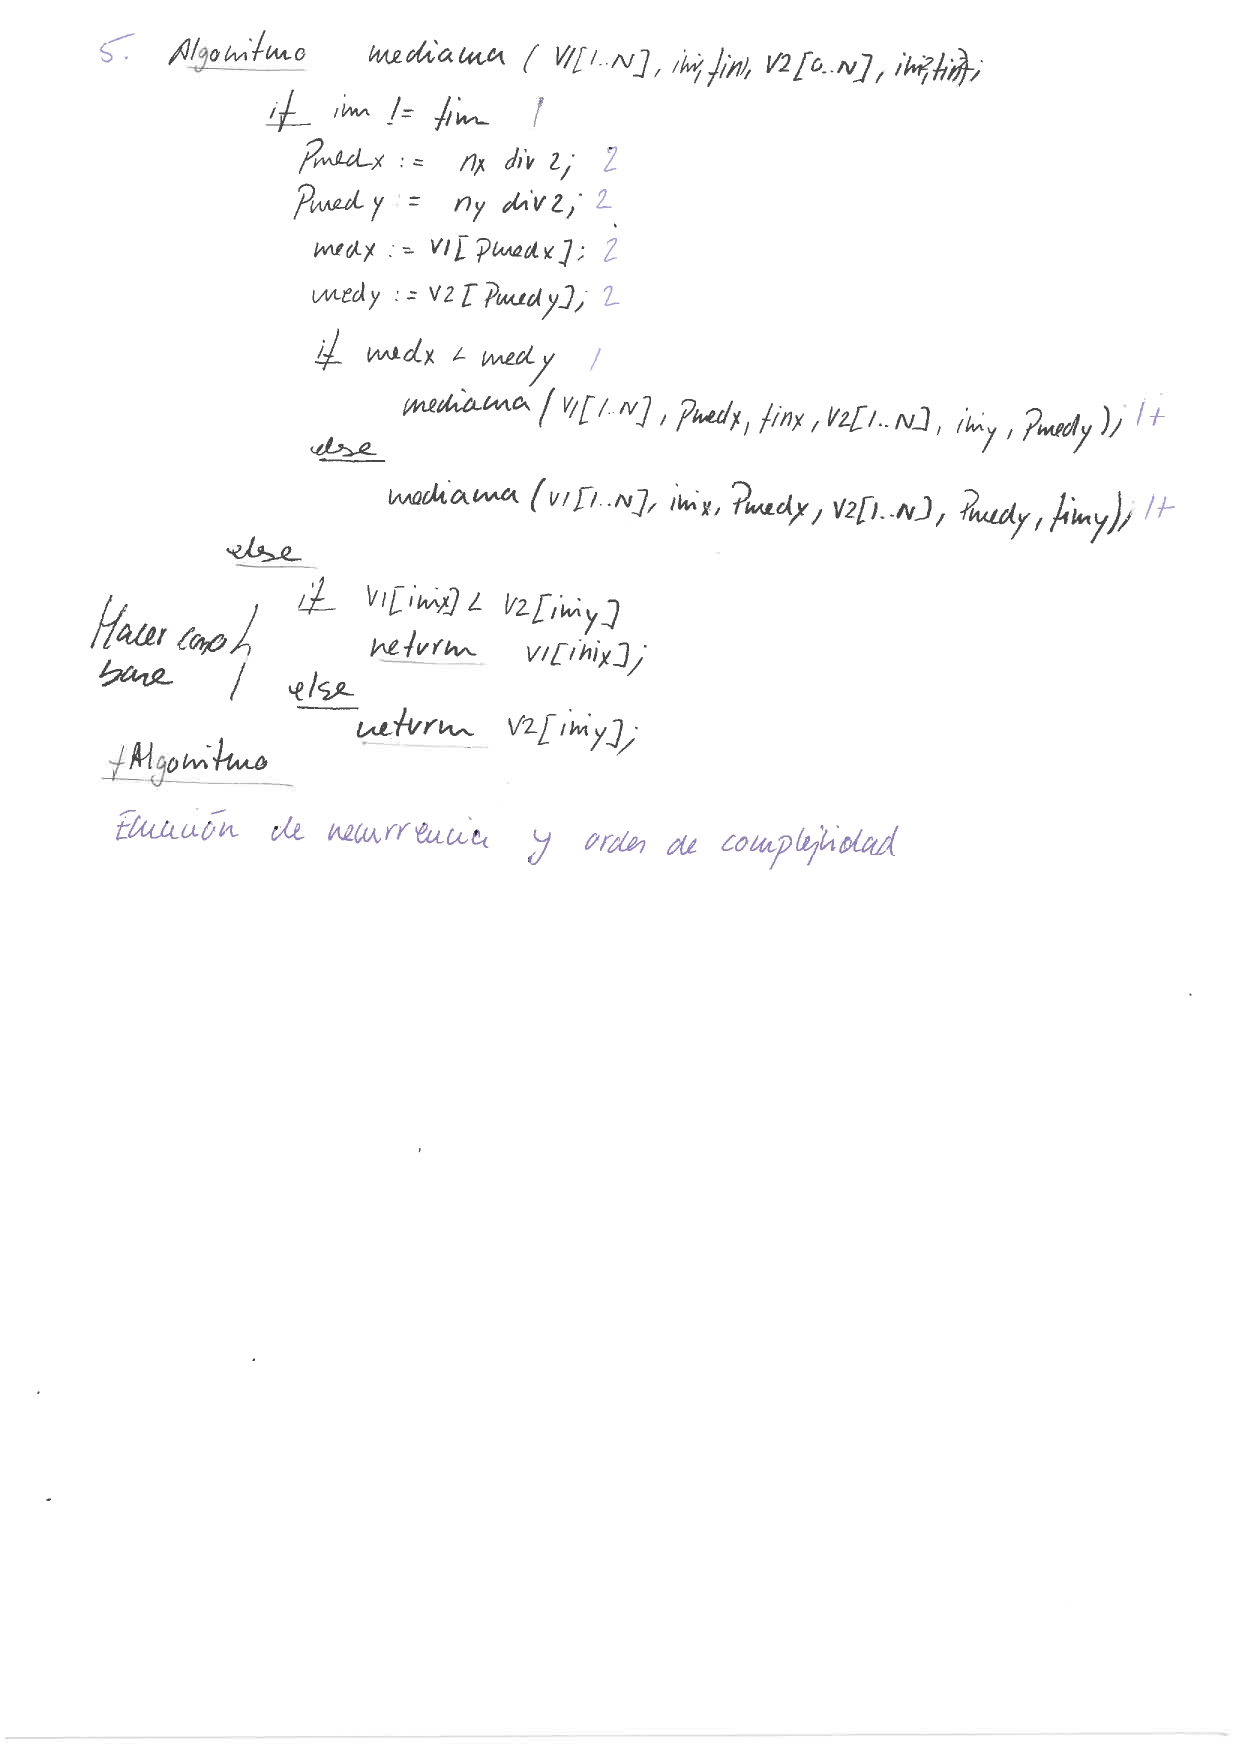 5. Algoritmo mediana ( V1[1..N], ini, fin, V2[0..N], ini2, fin2);
if ini != fin 1
Pmedx := nx div 2; 2
Pmedy = ny div 2; 2
medx := V1[Pmedx]; 2
medy := V2[Pmedy]; 2
if medx < medy 1
mediana (V1[1..N], Pmedx, finx, V2[1..N], iniy, Pmedy); 1+
else
mediana (V1[1..N], inix, Pmedx, V2[1..N], Pmedy, finy); 1+
else
if V1[inix] < V2[iniy]
Hacer caso
return V1[inix];
base
else
return V2[iniy];
fAlgoritmo
Ecuación de recurrencia y orden de complejidad